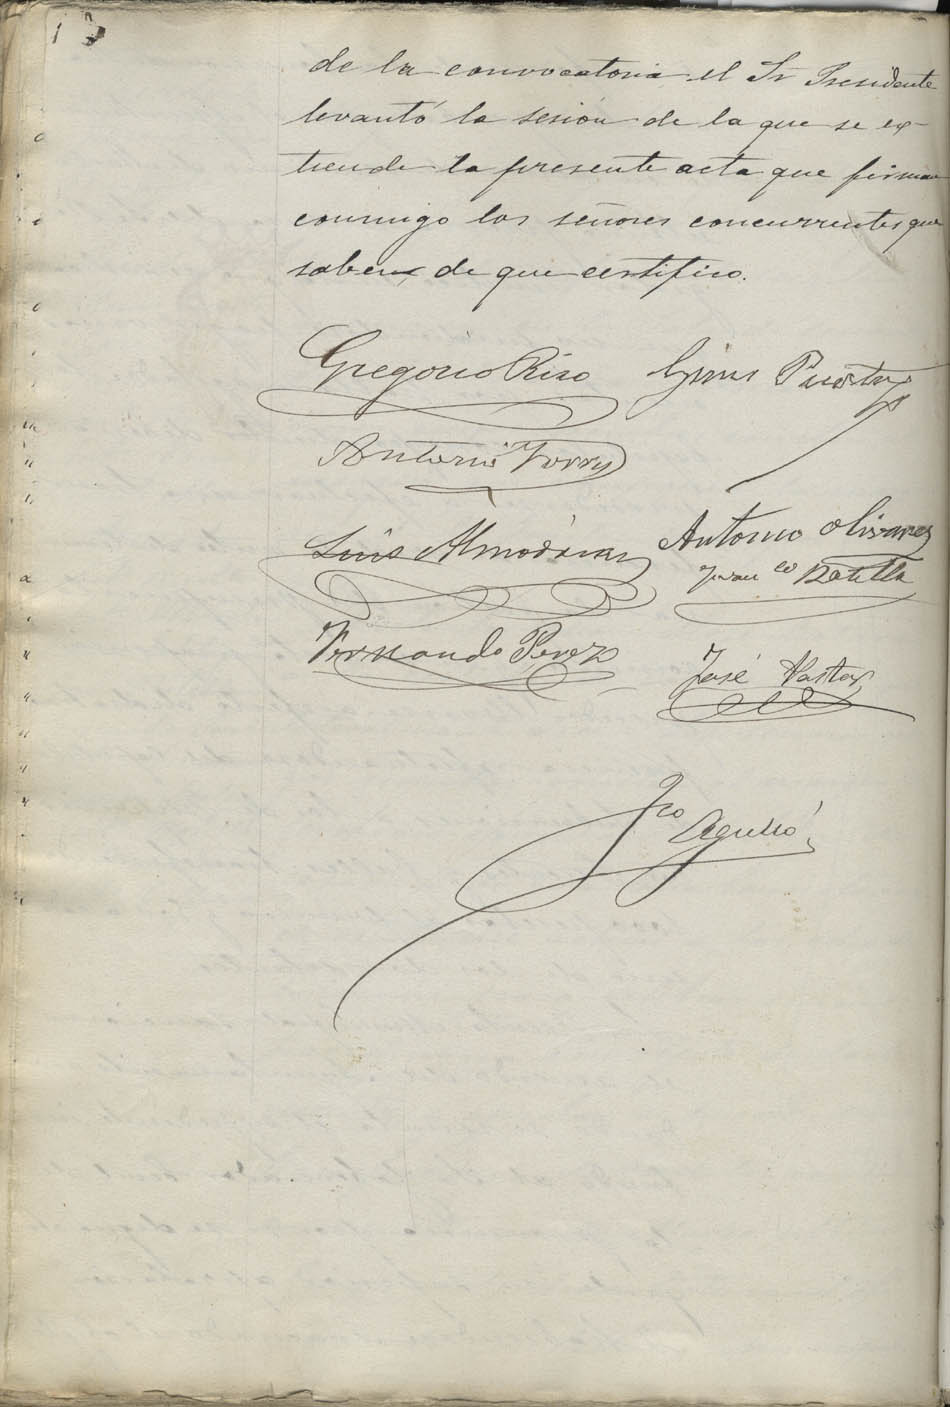 de la convocatoria el Sr Presidente
levantó la sesión de la que se ex-
tiende la presente acta que firman
conmigo los señores concurrentes que
saben de que certifico.
Gregorio Rizo Gines Puerta
Antonio Torres
Luis Almodovar Antonio Olivares
Fernando Perez José Pastor
Fco Agulló